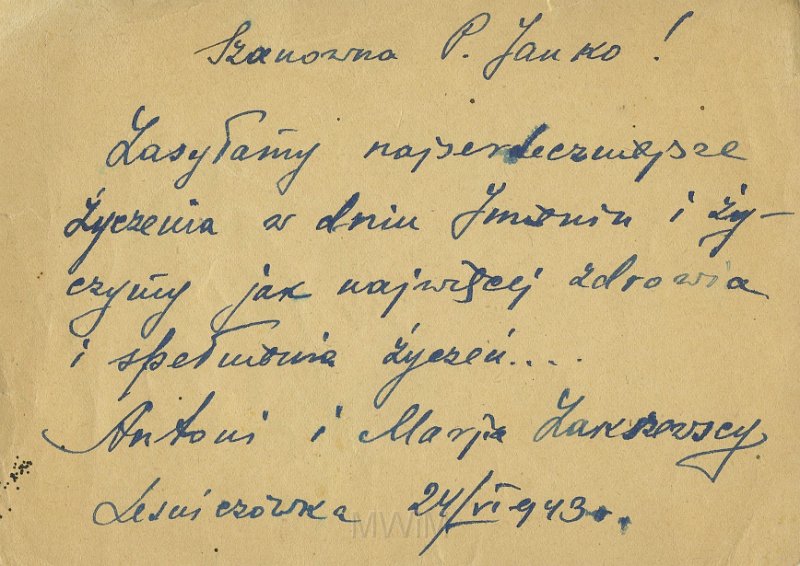 Szanowna P. Janko!
Zasyłamy najserdeczniejsze
życzenia w dniu Imienin i ży-
czymy jak najwięcej zdrowia
i spełnienia życzeń....
Antoni i Marja Zakrzewscy
Leśniczówka 24/VI 943 r.
MWIM